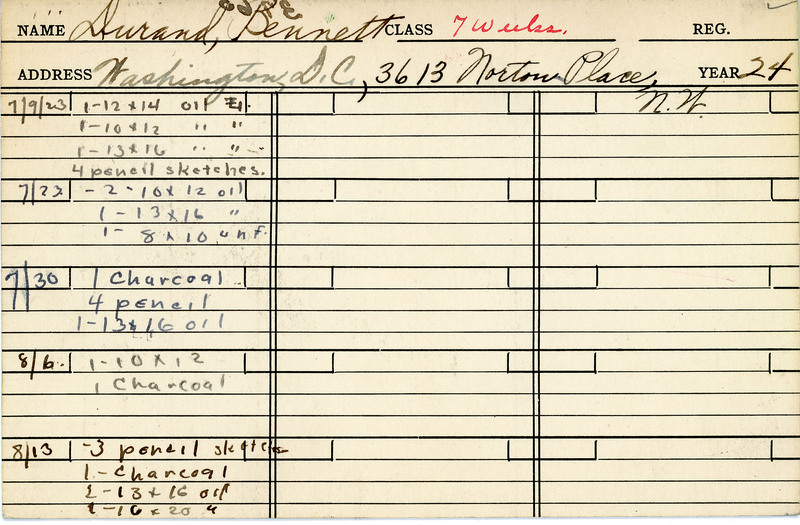 NAME Durand, Bennett CLASS 7 Weeks. REG.
ADDRESS Washington, D.C., 3613 Norton Place, N.W. YEAR 24
7/9/23 1-12x14 oil
1-10x12 " "
1-13x16 " "
4 pencil sketches.
7/23 -2-10x12 oil
1-13x16 "
1- 8x10 " unf.
7/30 1 Charcoal
4 pencil
1-13x16 oil
8/6. 1-10x12
1 Charcoal
8/13 -3 pencil sketches
1-Charcoal
2-13x16 oil
1-16x20 "